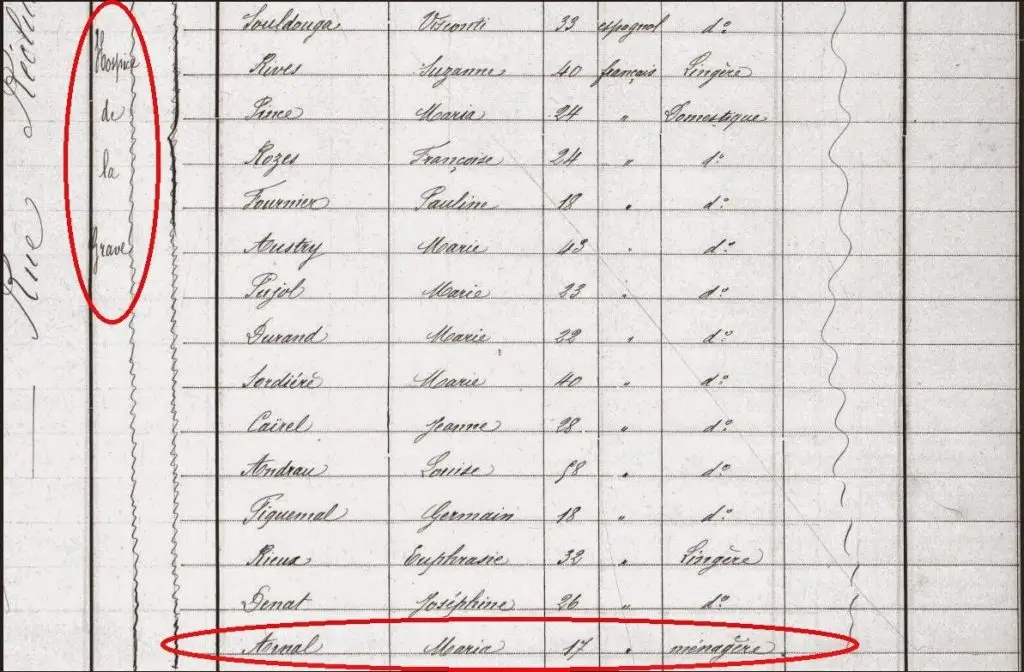 Rue
Hospice
de
la
Grave
Souldouga Visconti 33 espagnol d°
Rives Suzanne 40 français Lingère
Pince Maria 24 " Domestique
Rozes Françoise 24 " d°
Fournier Pauline 18 " d°
Austry Marie 43 " d°
Pujol Marie 23 " d°
Durand Marie 22 " d°
Sordiére Marie 40 " d°
Caïrel Jeanne 28 " d°
Andrau Louise 58 " d°
Figuemal Germain 18 " d°
Rieux Euphrasie 32 " Lingère
Denat Joséphine 26 " d°
Arnal Maria 17 " ménagère